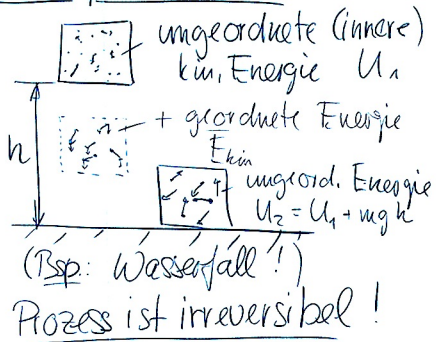 ungeordnete (innere)
kin. Energie U₁
h
+ geordnete Energie
E_kin
ungeord. Energie
U₂ = U₁ + mgh
(Bsp: Wasserfall!)
Prozess ist irreversibel!